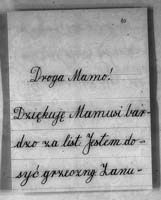 Droga Mamo!
Dziękuję Mamusi bar-
dzo za list. Jestem do-
syć grzeczną. Zanu-